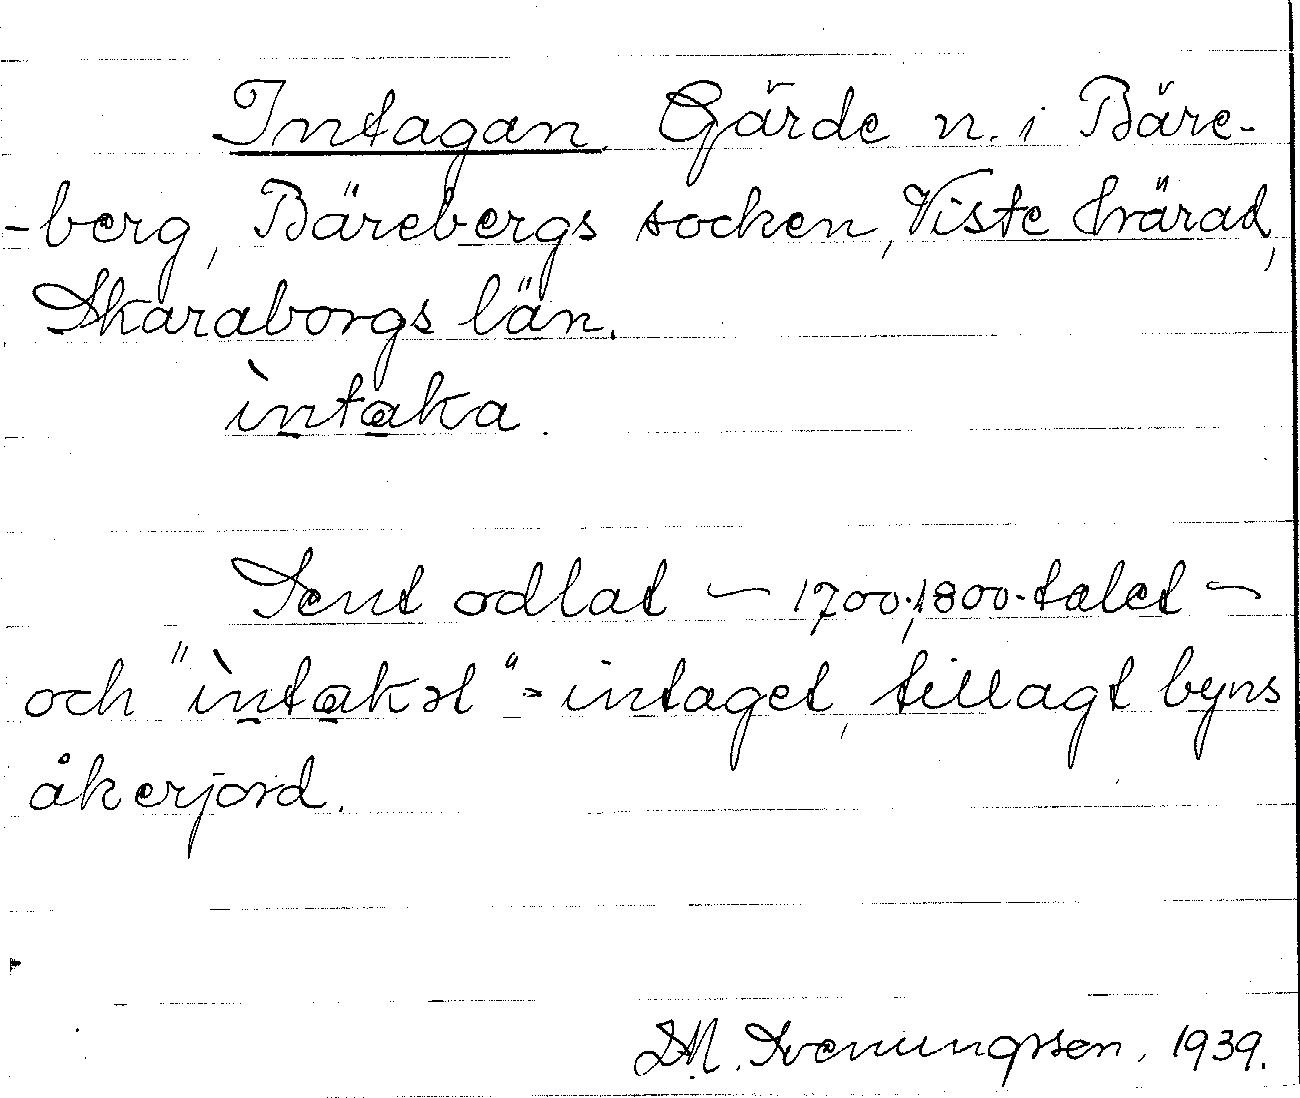 Intagan. Gärde n. i Bäre-
-berg, Bärebergs socken, Viste härad,
Skaraborgs län.
ìntaka.
Sent odlat – 1700-, 1800-talet –
och "ìntakət" - intaget, tillagt byns
åkerjord.
D.M. Svenungsson, 1939.